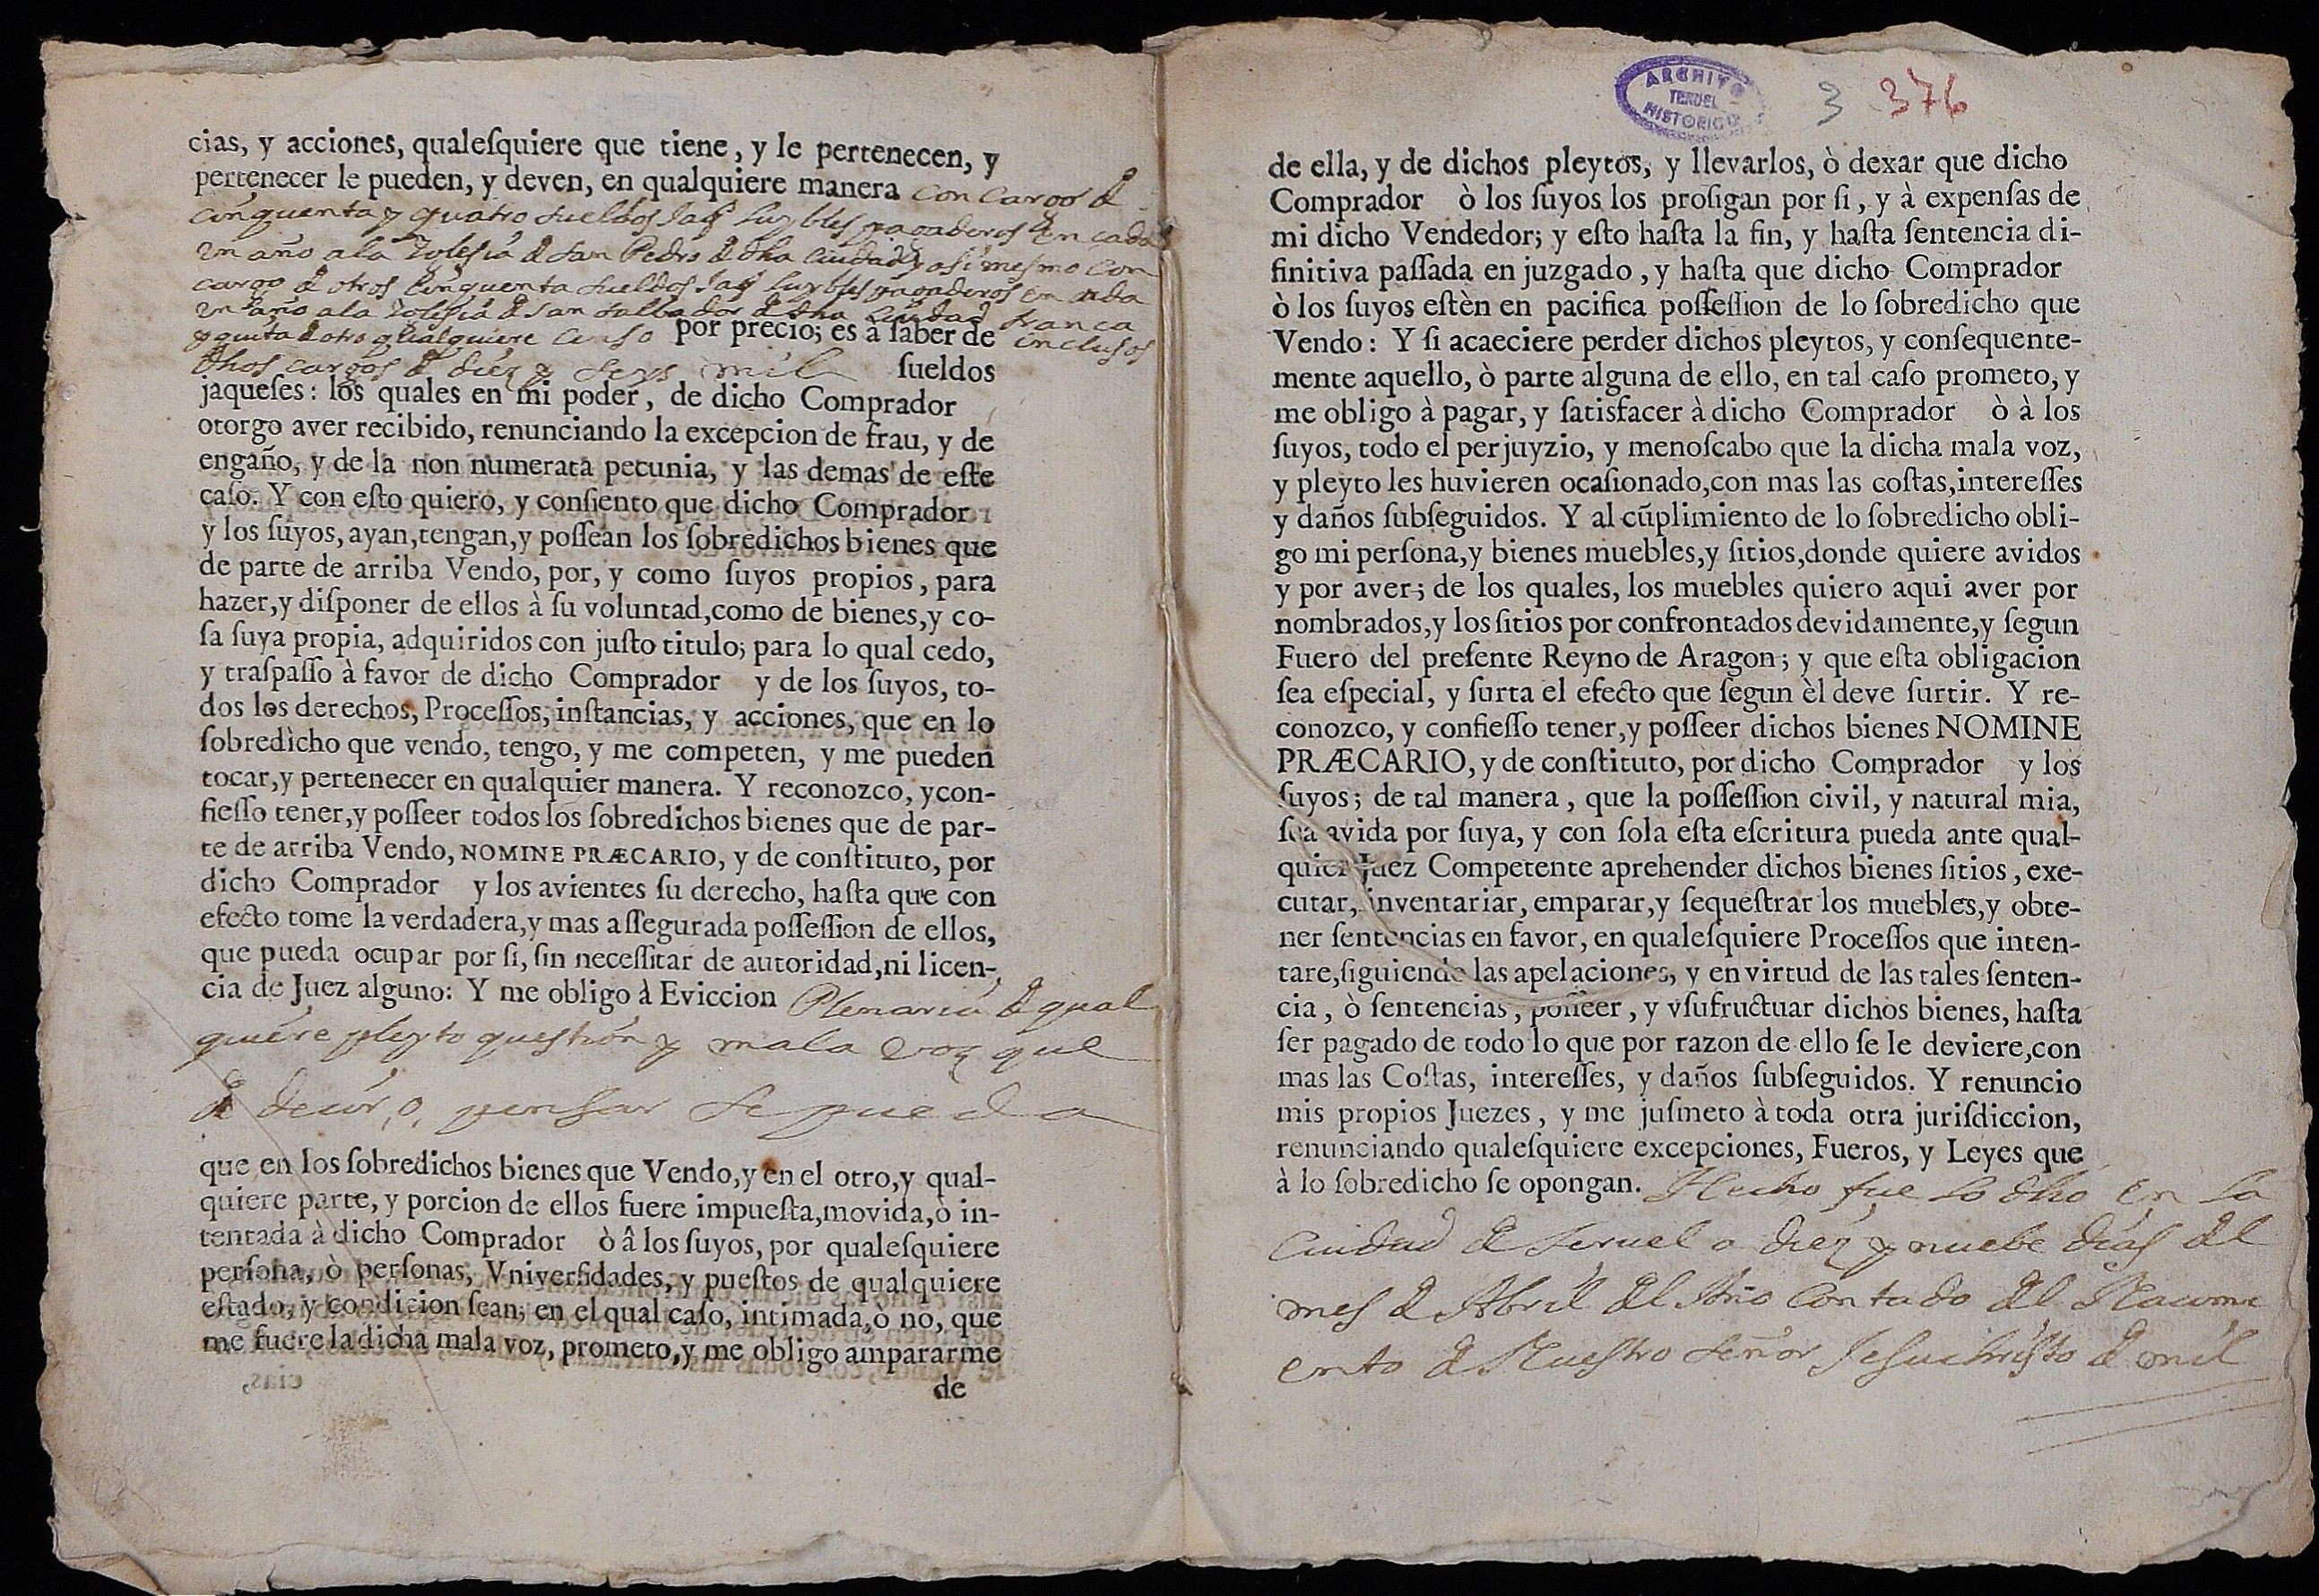 cias, y acciones, qualeſquiere que tiene, y le pertenecen, y
pertenecer le pueden, y deven, en qualquiere manera con cargo d
cinquenta y quatro sueldos Jaqs luybles pagaderos en cada
un año a la Iglesia d San Pedro d dha ciudad y asi mesmo con
cargo d otros cinquenta sueldos Jaqs luybles pagaderos en cada
un año a la Iglesia d San Salbador d dha Ciudad franca
y quita d otro qualquiere censo por precio; es à ſaber de inclusos
dhos cargos d diez y seys mil ſueldos
jaqueſes: los quales en mi poder, de dicho Comprador
otorgo aver recibido, renunciando la excepcion de frau, y de
engaño, y de la non numerata pecunia, y las demas de eſte
caſo. Y con eſto quiero, y conſiento que dicho Comprador
y los ſuyos, ayan, tengan, y poſſean los ſobredichos bienes que
de parte de arriba Vendo, por, y como ſuyos propios, para
hazer, y diſponer de ellos à ſu voluntad, como de bienes, y co-
ſa ſuya propia, adquiridos con juſto titulo; para lo qual cedo,
y traſpaſſo à favor de dicho Comprador y de los ſuyos, to-
dos los derechos, Proceſſos, inſtancias, y acciones, que en lo
ſobredicho que vendo, tengo, y me competen, y me pueden
tocar, y pertenecer en qualquier manera. Y reconozco, y con-
fieſſo tener, y poſſeer todos los ſobredichos bienes que de par-
te de arriba Vendo, NOMINE PRÆCARIO, y de conſtituto, por
dicho Comprador y los avientes ſu derecho, haſta que con
efecto tome la verdadera, y mas aſſegurada poſſeſſion de ellos,
que pueda ocupar por ſi, ſin neceſſitar de autoridad, ni licen-
cia de Juez alguno: Y me obligo à Eviccion Plenaria d qual
quiere pleyto question y mala voz que
d decir, o, pensar se pueda
que en los ſobredichos bienes que Vendo, y en el otro, y qual-
quiere parte, y porcion de ellos fuere impueſta, movida, ò in-
tentada à dicho Comprador ò â los ſuyos, por qualeſquiere
perſona, ò perſonas, Vniverſidades, y pueſtos de qualquiere
eſtado, y condicion ſean; en el qual caſo, intimada, ò no, que
me fuere la dicha mala voz, prometo, y me obligo ampararme
de
ARCHIVO
TERUEL
HISTORICO
3 376
de ella, y de dichos pleytos, y llevarlos, ò dexar que dicho
Comprador ò los ſuyos los proſigan por ſi, y à expenſas de
mi dicho Vendedor; y eſto haſta la fin, y haſta ſentencia di-
finitiva paſſada en juzgado, y haſta que dicho Comprador
ò los ſuyos eſtèn en pacifica poſſeſſion de lo ſobredicho que
Vendo: Y ſi acaeciere perder dichos pleytos, y conſequente-
mente aquello, ò parte alguna de ello, en tal caſo prometo, y
me obligo à pagar, y ſatisfacer à dicho Comprador ò à los
ſuyos, todo el perjuyzio, y menoſcabo que la dicha mala voz,
y pleyto les huvieren ocaſionado, con mas las coſtas, intereſſes
y daños ſubſeguidos. Y al cũplimiento de lo ſobredicho obli-
go mi perſona, y bienes muebles, y ſitios, donde quiere avidos
y por aver; de los quales, los muebles quiero aqui aver por
nombrados, y los ſitios por confrontados devidamente, y ſegun
Fuero del preſente Reyno de Aragon; y que eſta obligacion
ſea eſpecial, y ſurta el efecto que ſegun èl deve ſurtir. Y re-
conozco, y confieſſo tener, y poſſeer dichos bienes NOMINE
PRÆCARIO, y de conſtituto, por dicho Comprador y los
ſuyos; de tal manera, que la poſſeſſion civil, y natural mia,
ſea avida por ſuya, y con ſola eſta eſcritura pueda ante qual-
quier Juez Competente aprehender dichos bienes ſitios, exe-
cutar, inventariar, emparar, y ſequeſtrar los muebles, y obte-
ner ſentencias en favor, en qualeſquiere Proceſſos que inten-
tare, ſiguiendo las apelaciones, y en virtud de las tales ſenten-
cia, ò ſentencias, poſſeer, y vſufructuar dichos bienes, haſta
ſer pagado de todo lo que por razon de ello ſe le deviere, con
mas las Coſtas, intereſſes, y daños ſubſeguidos. Y renuncio
mis propios Juezes, y me juſmeto à toda otra juriſdiccion,
renunciando qualeſquiere excepciones, Fueros, y Leyes que
à lo ſobredicho ſe opongan. Hecho fue lo dho en la
Ciudad d Teruel a diez y nuebe dias del
mes d Abril del Año contado del Nacimi
ento d Nuestro Señor Jesuchristo d mil